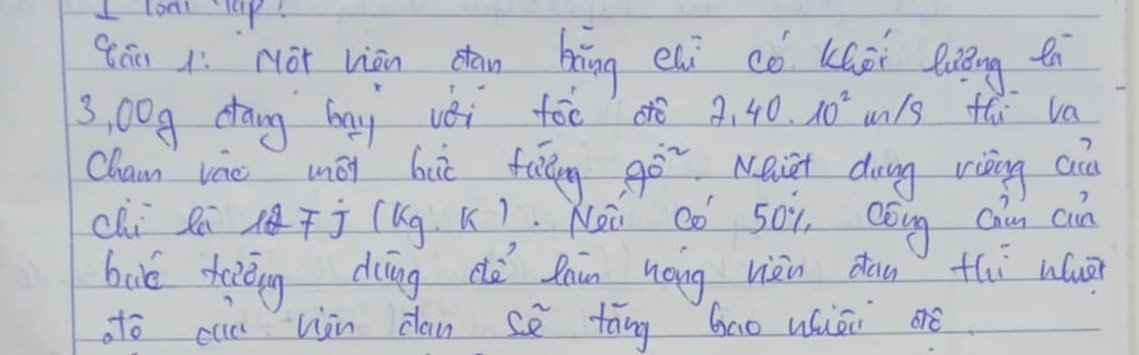 I
Câu 1: Một viên đạn bằng chì có khối lượng là
3,00g đang bay với tốc độ 2,40.10² m/s thì va
chạm vào một bức tường gỗ. Nhiệt dung riêng của
chì là 127 J (kg.K). Nếu có 50% công cản của
bức tường dùng để làm nóng viên đạn thì nhiệt
độ của viên đạn sẽ tăng bao nhiêu độ